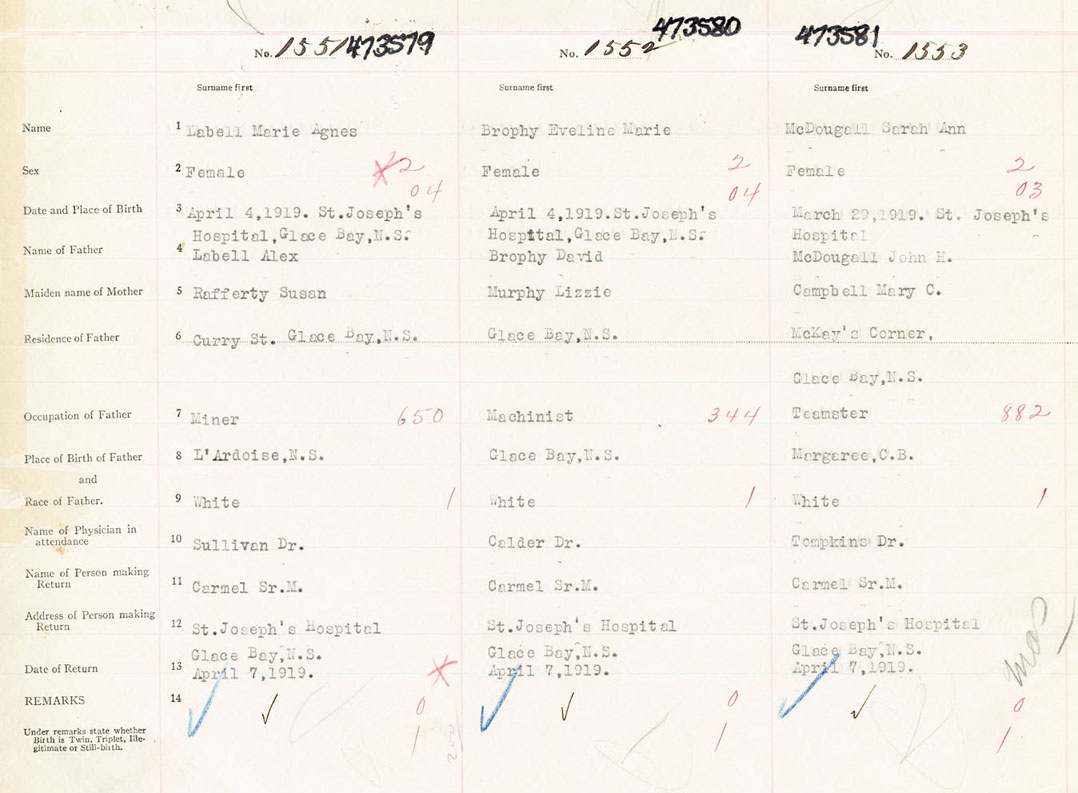 No. 1551 473579 No. 1552 473580 473581 No. 1553
Surname first Surname first Surname first
Name 1 Labell Marie Agnes Brophy Eveline Marie McDougall Sarah Ann
Sex 2 Female 2 Female 2 Female 2
04 04 03
Date and Place of Birth 3 April 4,1919. St.Joseph's April 4,1919.St.Joseph's March 29,1919. St. Joseph's
Hospital,Glace Bay,N.S. Hospital,Glace Bay,N.S. Hospital
Name of Father 4 Labell Alex Brophy David McDougall John H.
Maiden name of Mother 5 Rafferty Susan Murphy Lizzie Campbell Mary C.
Residence of Father 6 Curry St. Glace Bay,N.S. Glace Bay,N.S. McKay's Corner,
Glace Bay,N.S.
Occupation of Father 7 Miner 650 Machinist 344 Teamster 882
Place of Birth of Father 8 L'Ardoise,N.S. Glace Bay,N.S. Margaree,C.B.
and
Race of Father. 9 White 1 White 1 White 1
Name of Physician in
attendance 10 Sullivan Dr. Calder Dr. Tompkins Dr.
Name of Person making
Return 11 Carmel Sr.M. Carmel Sr.M. Carmel Sr.M.
Address of Person making
Return 12 St.Joseph's Hospital St.Joseph's Hospital St.Joseph's Hospital
Glace Bay,N.S. Glace Bay,N.S. Glace Bay,N.S.
Date of Return 13 April 7,1919. April 7,1919. April 7,1919.
REMARKS 14 0 0 0
Under remarks state whether
Birth is Twin, Triplet, Ille- 1 1 1
gitimate or Still-birth.